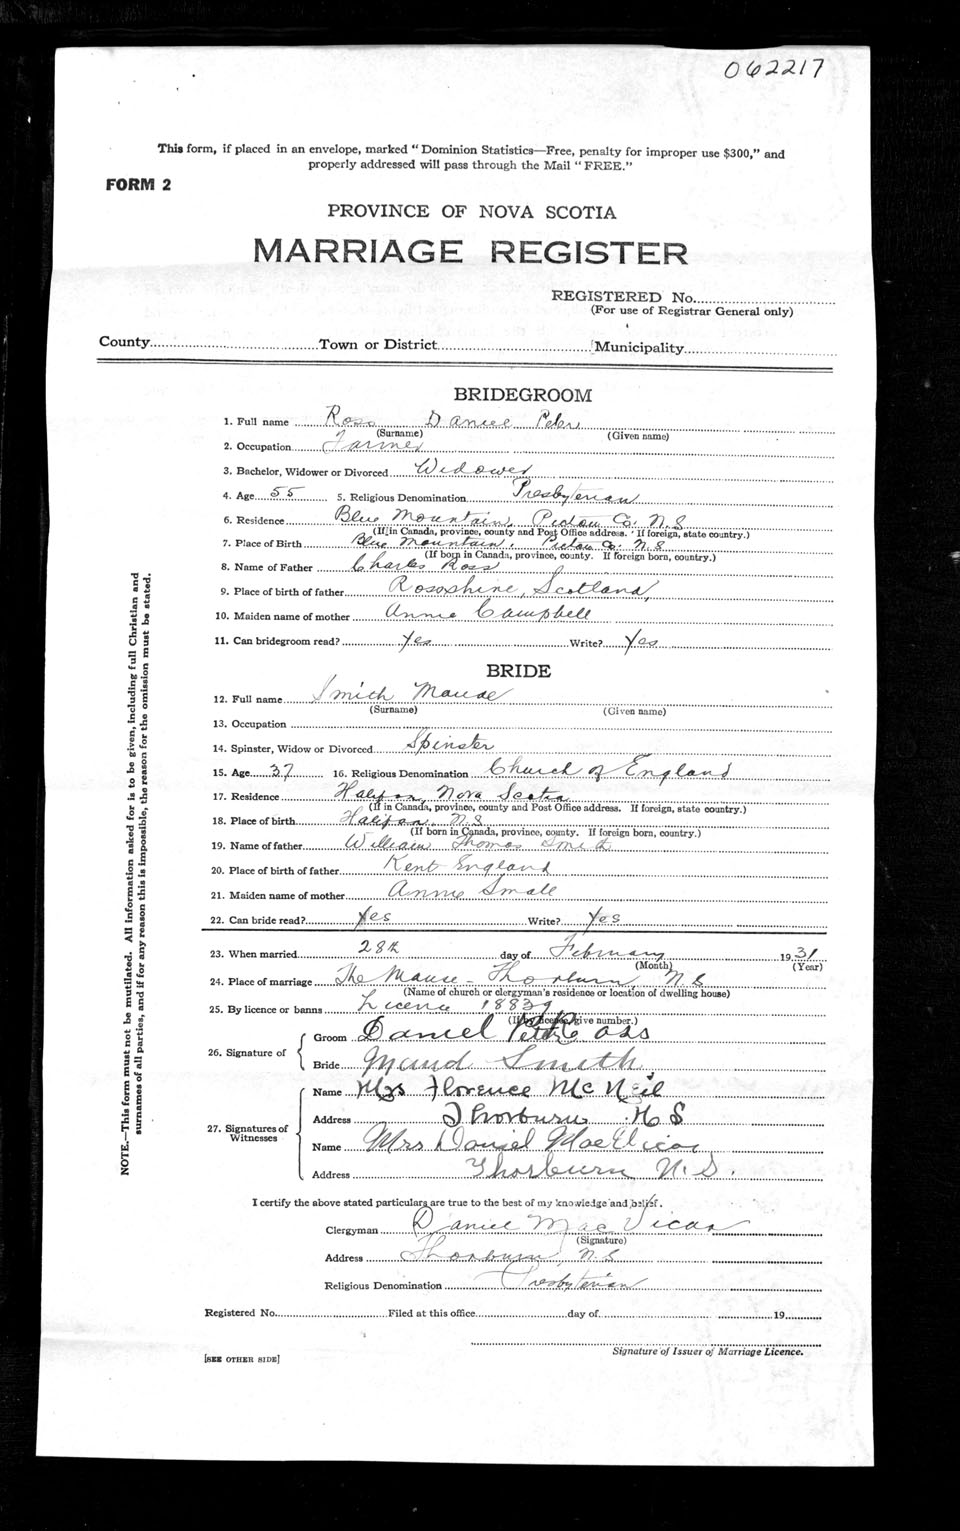 062217
This form, if placed in an envelope, marked "Dominion Statistics—Free, penalty for improper use $300," and
properly addressed will pass through the Mail "FREE."
FORM 2
PROVINCE OF NOVA SCOTIA
MARRIAGE REGISTER
REGISTERED No.
(For use of Registrar General only)
County Town or District Municipality
BRIDEGROOM
1. Full name Ross Daniel Peter
(Surname) (Given name)
2. Occupation Farmer
3. Bachelor, Widower or Divorced Widower
4. Age 55 5. Religious Denomination Presbyterian
6. Residence Blue Mountain, Pictou Co. N.S
(If in Canada, province, county and Post Office address. If foreign, state country.)
7. Place of Birth Blue Mountain, Pictou Co. N.S
(If born in Canada, province, county. If foreign born, country.)
8. Name of Father Charles Ross
9. Place of birth of father Rossshire, Scotland,
10. Maiden name of mother Annie Campbell
11. Can bridegroom read? Yes Write? Yes
BRIDE
12. Full name Smith Maude
(Surname) (Given name)
13. Occupation
14. Spinster, Widow or Divorced Spinster
15. Age 37 16. Religious Denomination Church of England
17. Residence Halifax, Nova Scotia
(If in Canada, province, county and Post Office address. If foreign, state country.)
18. Place of birth Halifax N.S
(If born in Canada, province, county. If foreign born, country.)
19. Name of father William Thomas Smith
20. Place of birth of father Kent England
21. Maiden name of mother Annie Small
22. Can bride read? Yes Write? Yes
23. When married 28th day of February 1931
(Month) (Year)
24. Place of marriage The Manse - Thorburn, N.S
(Name of church or clergyman's residence or location of dwelling house)
25. By licence or banns Licence 18839
(If by licence, give number.)
26. Signature of
Groom Daniel Peter Ross
Bride Maud Smith
27. Signatures of Witnesses
Name Mrs Florence McNeil
Address Thorburn N S
Name Mrs Daniel MacVicar
Address Thorburn N.S.
I certify the above stated particulars are true to the best of my knowledge and belief.
Clergyman Daniel MacVicar
(Signature)
Address Thorburn, N.S
Religious Denomination Presbyterian
Registered No. Filed at this office day of 19
Signature of Issuer of Marriage Licence.
[SEE OTHER SIDE]
NOTE.—This form must not be mutilated. All information asked for is to be given, including full Christian and
surnames of all parties, and if for any reason this is impossible, the reason for the omission must be stated.